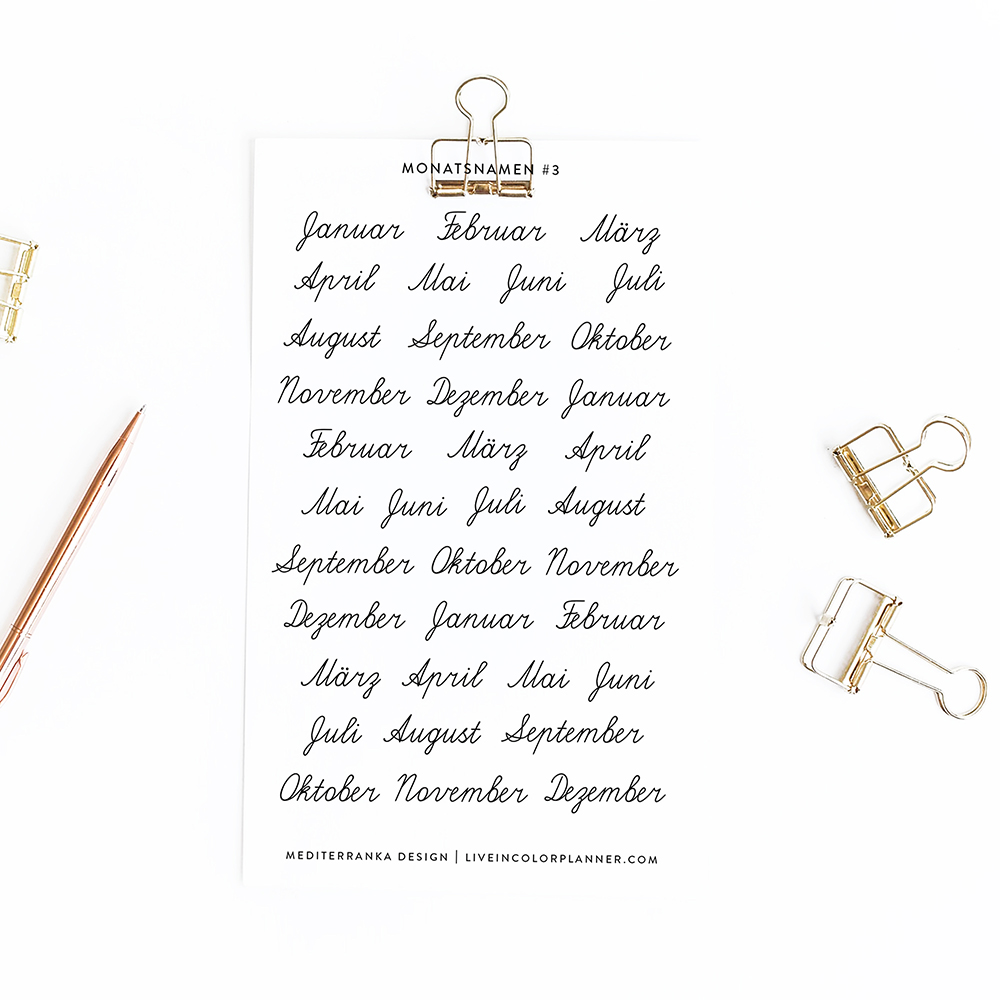 MONATSNAMEN #3
Januar Februar März
April Mai Juni Juli
August September Oktober
November Dezember Januar
Februar März April
Mai Juni Juli August
September Oktober November
Dezember Januar Februar
März April Mai Juni
Juli August September
Oktober November Dezember
MEDITERRANKA DESIGN | LIVEINCOLORPLANNER.COM